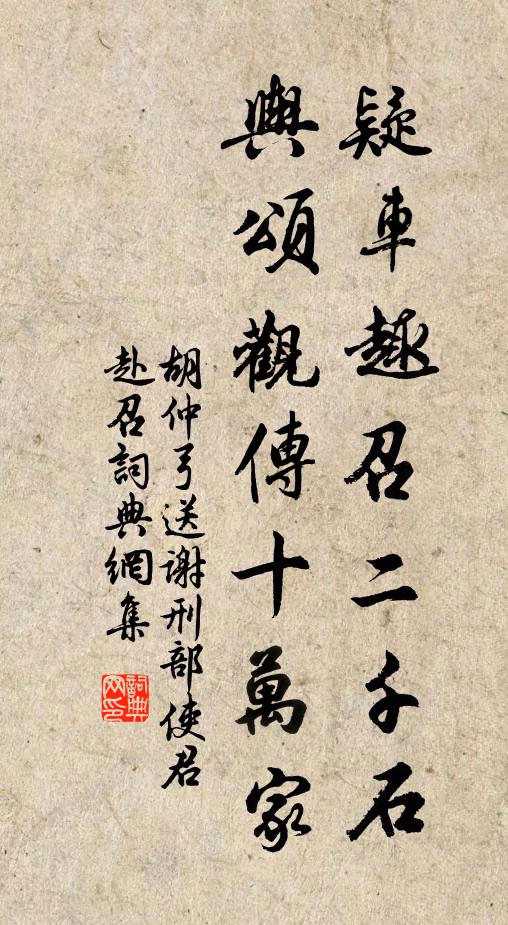 疑車趣召二千石
輿頌觀傳十萬家
胡仲弓送謝刑部使君
赴召詞典網集
詞典網印